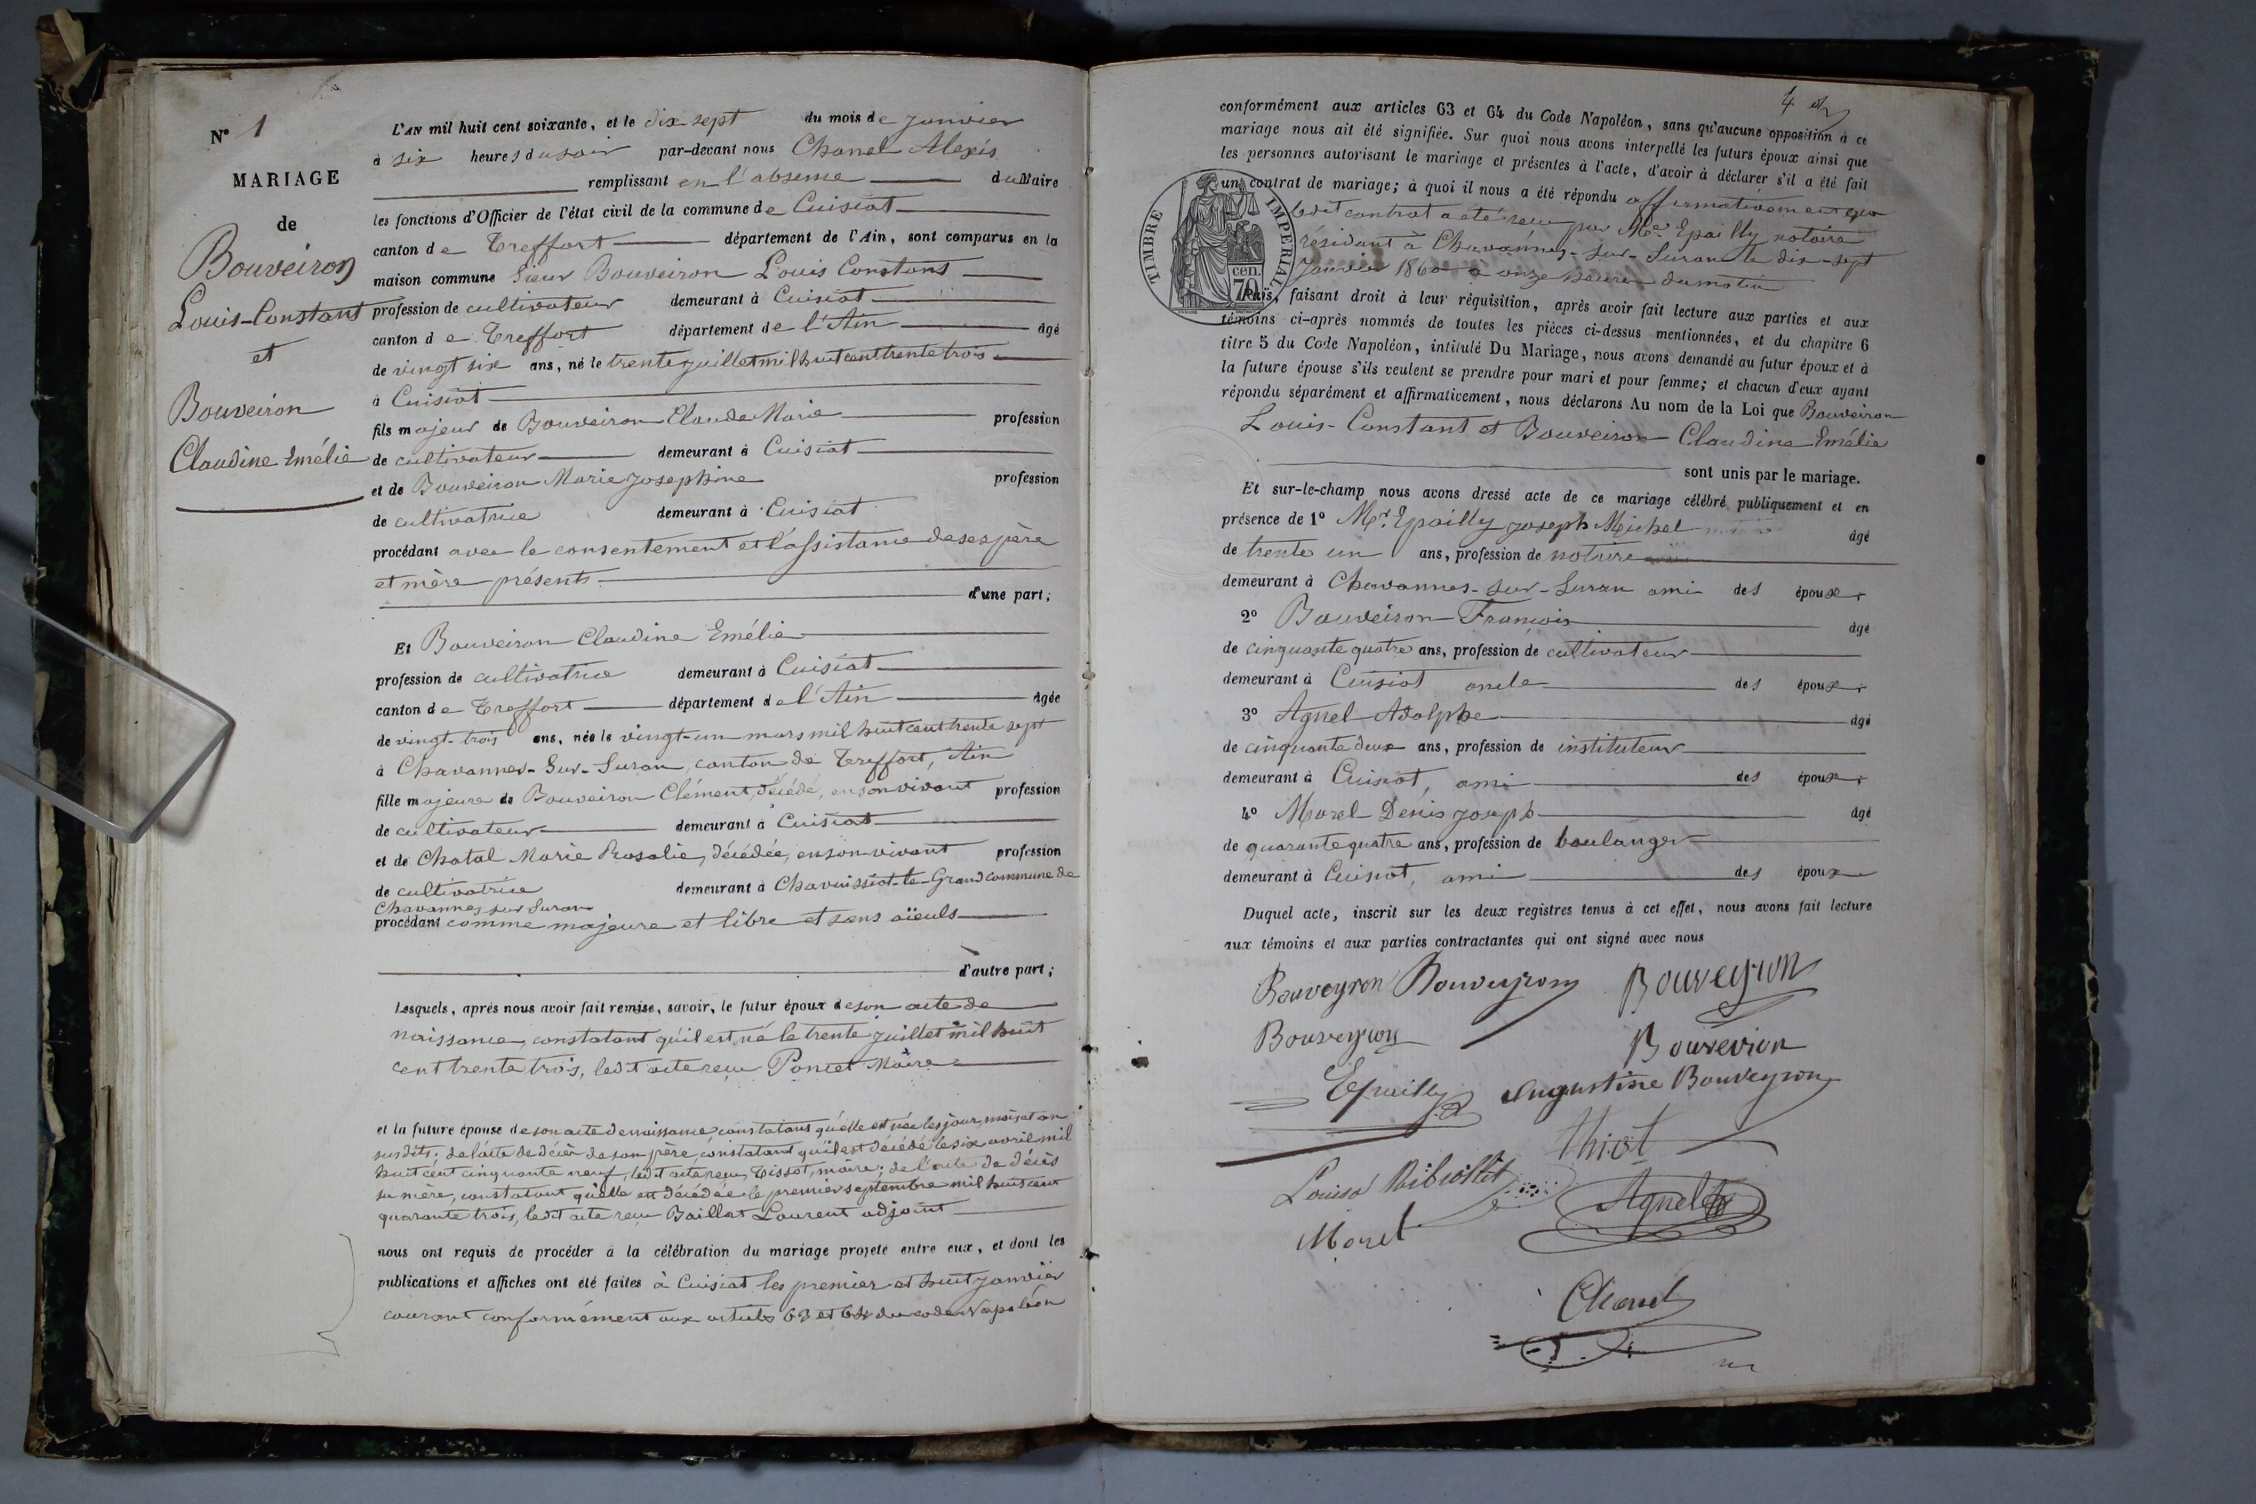 N° 1
MARIAGE
de
Bouveiron
Louis-Constant
et
Bouveiron
Claudine Emélie
L'AN mil huit cent soixante, et le dix sept du mois de janvier
à six heures du soir par-devant nous Chanel Alexis
remplissant en l'absence du Maire
les fonctions d'Officier de l'état civil de la commune de Cuisiat
canton de Treffort département de l'Ain, sont comparus en la
maison commune Sieur Bouveiron Louis Constans
profession de cultivateur demeurant à Cuisiat
canton de Treffort département de l'Ain âgé
de vingt six ans, né le trente juillet mil huit cent trente trois
à Cuisiat
fils majeur de Bouveiron Claude Marie profession
de cultivateur demeurant à Cuisiat
et de Bouveiron Marie Josephine profession
de cultivatrice demeurant à Cuisiat
procédant avec le consentement et l'assistance de ses père
et mère présents
d'une part;
Et Bouveiron Claudine Emélie
profession de cultivatrice demeurant à Cuisiat
canton de Treffort département de l'Ain âgée
de vingt-trois ans, née le vingt-un mars mil huit cent trente sept
à Chavannes-Sur-Suran, canton de Treffort, Ain
fille majeure de Bouveiron Clément, décédé, en son vivant profession
de cultivateur demeurant à Cuisiat
et de Chatal Marie Rosalie, décédée, en son vivant profession
de cultivatrice demeurant à Chavuissiat-le-Grand commune de
Chavannes sur Suran
procédant comme majeure et libre et sans aïeuls
d'autre part;
Lesquels, après nous avoir fait remise, savoir, le futur époux de son acte de
naissance, constatant qu'il est né le trente juillet mil huit
cent trente trois, ledit acte reçu Poncet Maire
et la future épouse de son acte de naissance, constatant qu'elle est née les jour, mois et an
susdits; de l'acte de décès de son père, constatant qu'il est décédé le six avril mil
huit cent cinquante neuf, ledit acte reçu Tissot, maire; de l'acte de décès
sa mère, constatant qu'elle est décédée le premier septembre mil huit cent
quarante trois, ledit acte reçu Baillat Laurent adjoint
nous ont requis de procéder à la célébration du mariage projeté entre eux, et dont les
publications et affiches ont été faites à Cuisiat les premier et huit janvier
courant conformément aux articles 63 et 64 du code Napoléon
4
conformément aux articles 63 et 64 du Code Napoléon, sans qu'aucune opposition à ce
mariage nous ait été signifiée. Sur quoi nous avons interpellé les futurs époux ainsi que
les personnes autorisant le mariage et présentes à l'acte, d'avoir à déclarer s'il a été fait
un contrat de mariage; à quoi il nous a été répondu affirmativement que
ledit contrat a été reçu par Me Epailly notaire
résidant à Chavannes-sur-Suran le dix-sept
janvier 1860 à onze heures du matin
TIMBRE IMPERIAL
cen.
70
Puis, faisant droit à leur réquisition, après avoir fait lecture aux parties et aux
témoins ci-après nommés de toutes les pièces ci-dessus mentionnées, et du chapitre 6
titre 5 du Code Napoléon, intitulé Du Mariage, nous avons demandé au futur époux et à
la future épouse s'ils veulent se prendre pour mari et pour femme; et chacun d'eux ayant
répondu séparément et affirmativement, nous déclarons Au nom de la Loi que Bouveiron
Louis-Constant et Bouveiron Claudine Emélie
sont unis par le mariage.
Et sur-le-champ nous avons dressé acte de ce mariage célébré publiquement et en
présence de 1° Mr. Epailly Joseph Michel âgé
de trente un ans, profession de notaire
demeurant à Chavannes-sur-Suran ami des époux
2° Bouveiron François âgé
de cinquante quatre ans, profession de cultivateur
demeurant à Cuisiat oncle des époux
3° Agnel Adolphe âgé
de cinquante deux ans, profession de instituteur
demeurant à Cuisiat, ami des époux
4° Morel Denis Joseph âgé
de quarante quatre ans, profession de boulanger
demeurant à Cuisiat, ami des époux
Duquel acte, inscrit sur les deux registres tenus à cet effet, nous avons fait lecture
aux témoins et aux parties contractantes qui ont signé avec nous
Bouveyron Bouveyron Bouveyron
Bouveyron Bouveiron
Epailly Augustine Bouveyron
Thiot
Louise
Agnel
Morel
Chanel